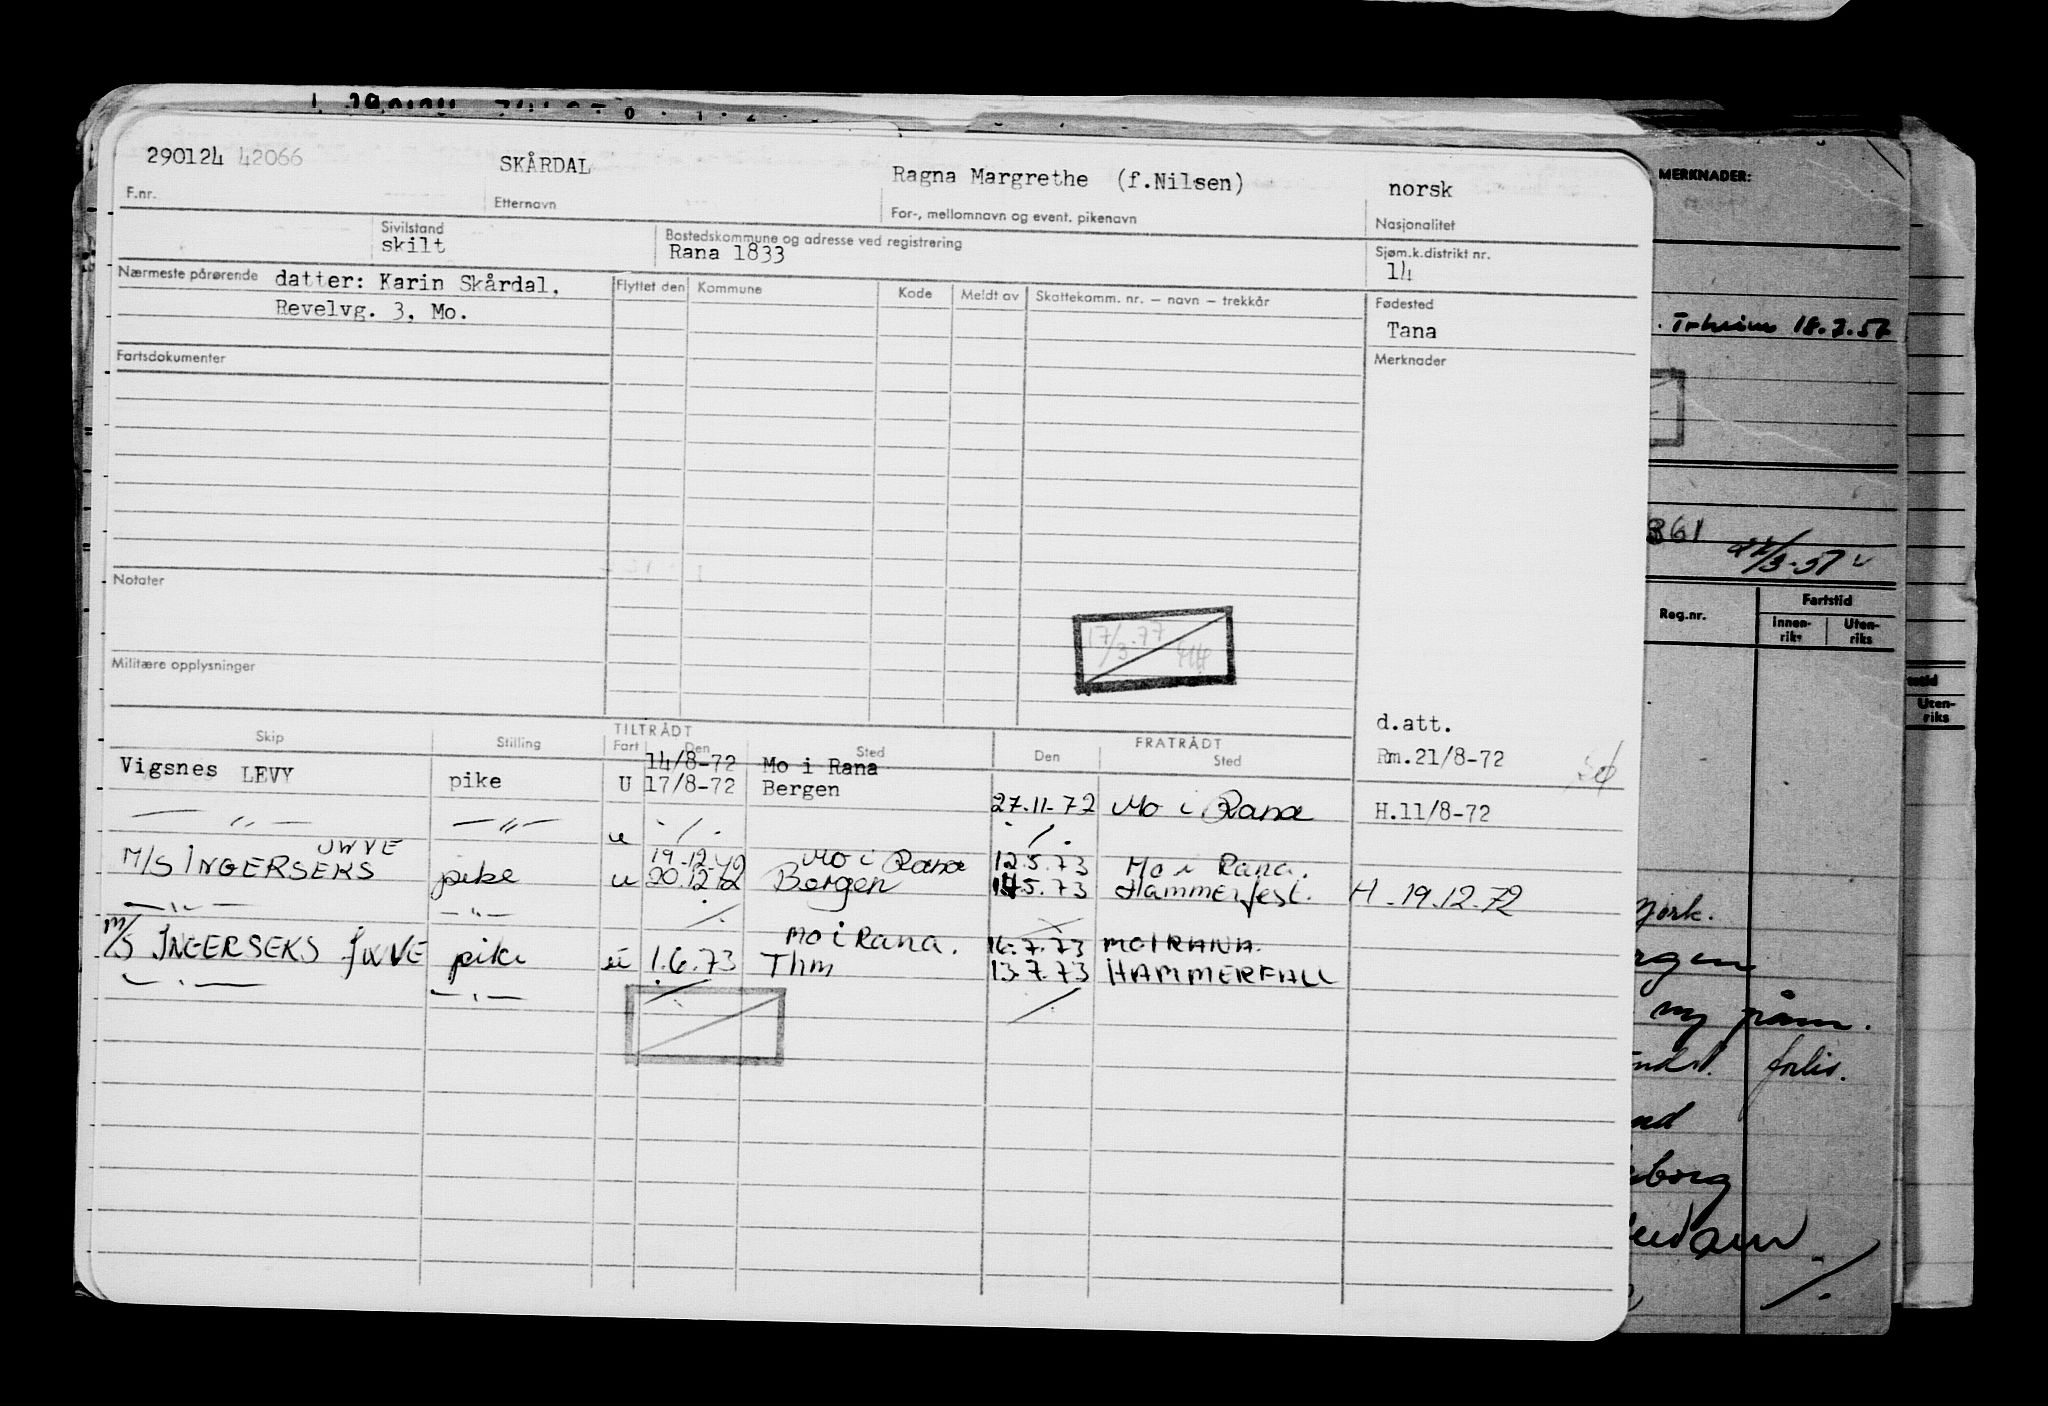 290124 42066 SKÅRDAL Ragna Margrethe (f.Nilsen) norsk
F.nr. Etternavn For-, mellomnavn og event. pikenavn Nasjonalitet
Sivilstand Bostedskommune og adresse ved registrering Sjøm.k.distrikt nr.
skilt Rana 1833 14
Nærmeste pårørende datter: Karin Skårdal, Flyttet den Kommune Kode Meldt av Skattekomm. nr. — navn — trekkår Fødested
Revelvg. 3, Mo. Tana
Fartsdokumenter Merknader
Notater
17/3-77
Militære opplysninger
d.att.
TILTRÅDT FRATRÅDT
Skip Stilling Fart Den Sted Den Sted
14/8-72 Mo i Rana Rm.21/8-72
Vigsnes LEVY pike U 17/8-72 Bergen
27.11.72 Mo i Rana H.11/8-72
— " — — " — u
UWVE 19.12.72 Mo i Rana 12.5.73 Mo i Rana.
M/S INGERSEKS pike u 20.12.72 Bergen 5.73 Hammerfest. H. 19.12.72
— " — — " —
Mo i Rana. 16.7.73 MO I RANA.
M/S INGERSEKS pike u 1.6.73 Thm 13.7.73 HAMMERFALL
— " — — " —
MERKNADER:
18.3.57
861
/3-57
Reg.nr. Fartstid
Innen-riks Uten-riks
ny
forlis.
Uten-riks